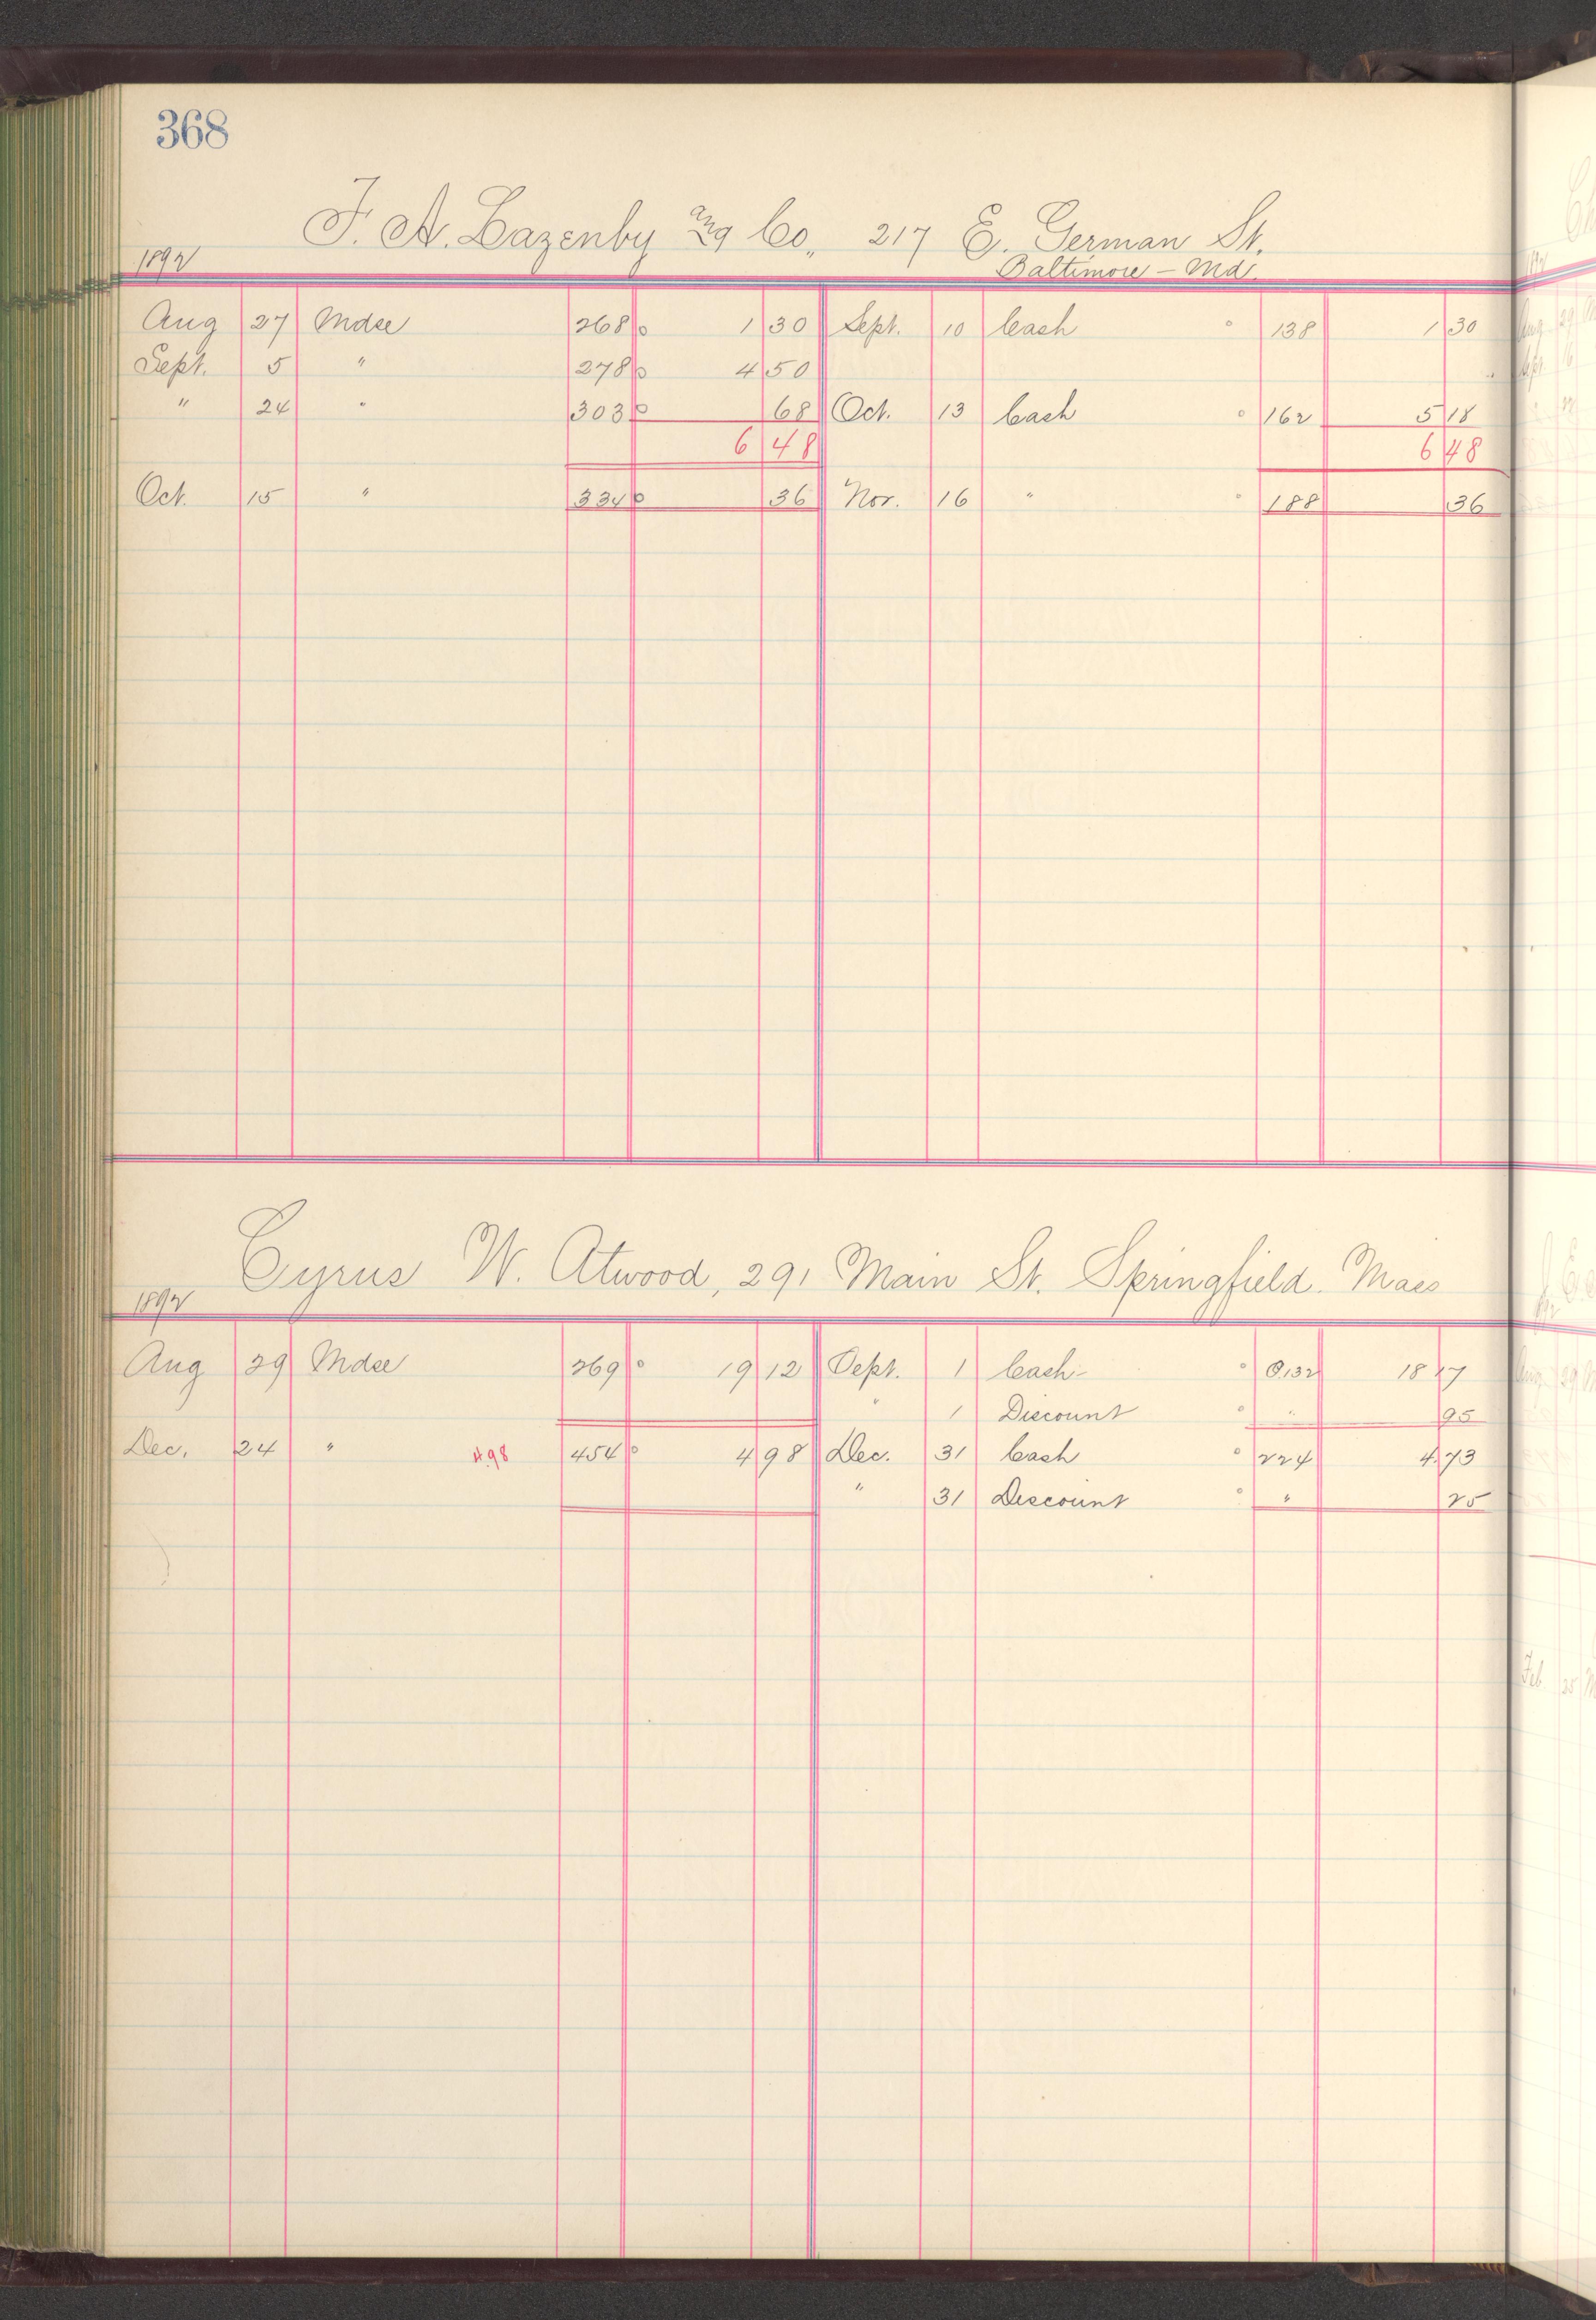 368
F. A. Lazenby & Co., 217 E. German St.
1892 Baltimore - Md.
Aug 27 Mdse 268 1 30 Sept. 10 Cash 138 1 30
Sept. 5 " 278 4 50
" 24 " 303 68 Oct. 13 Cash 162 5 18
6 48 6 48
Oct. 15 " 334 36 Nov. 16 " 188 36
Cyrus W. Atwood, 291 Main St. Springfield. Mass
1892
Aug 29 Mdse 269 19 12 Sept. 1 Cash - 132 18 17
" 1 Discount " 95
Dec. 24 " 4.98 454 4 98 Dec. 31 Cash 224 4.73
" 31 Discount " 25